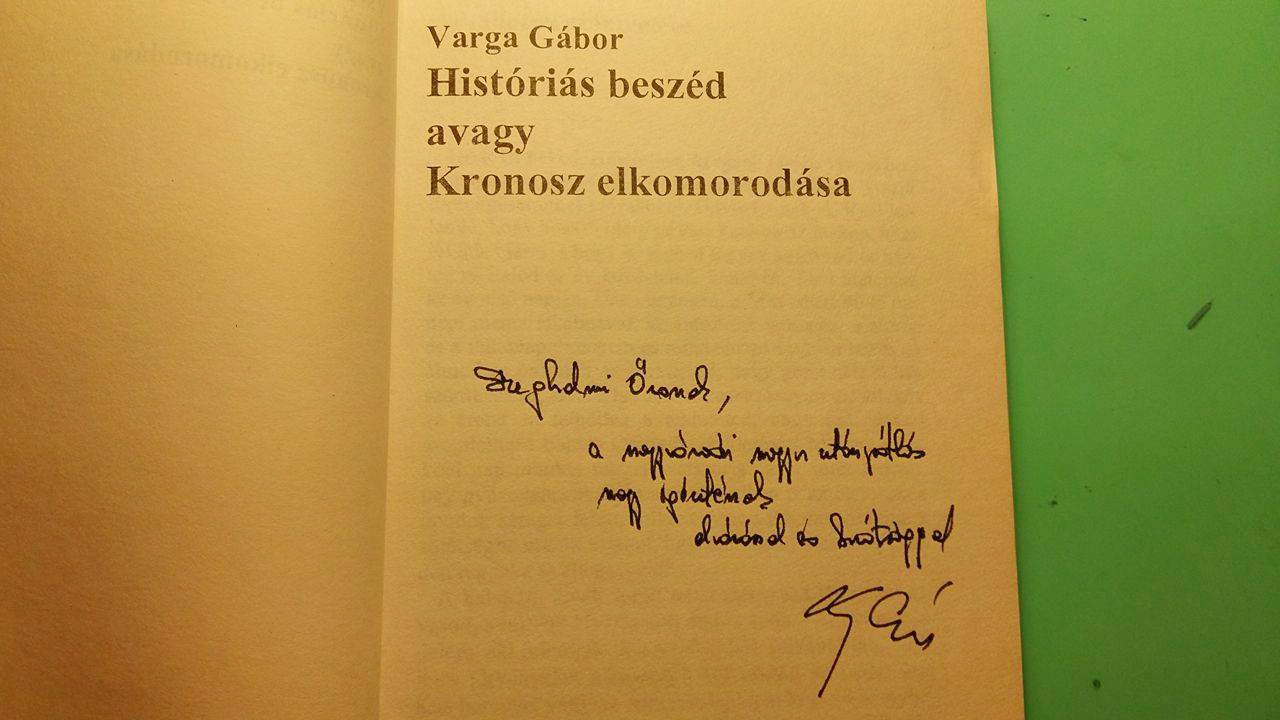 Varga Gábor
Históriás beszéd
avagy
Kronosz elkomorodása
Szeghalmi Örsnek,
a nagyváradi magyar utánpótlás
nagy ígéretének
és barátsággal